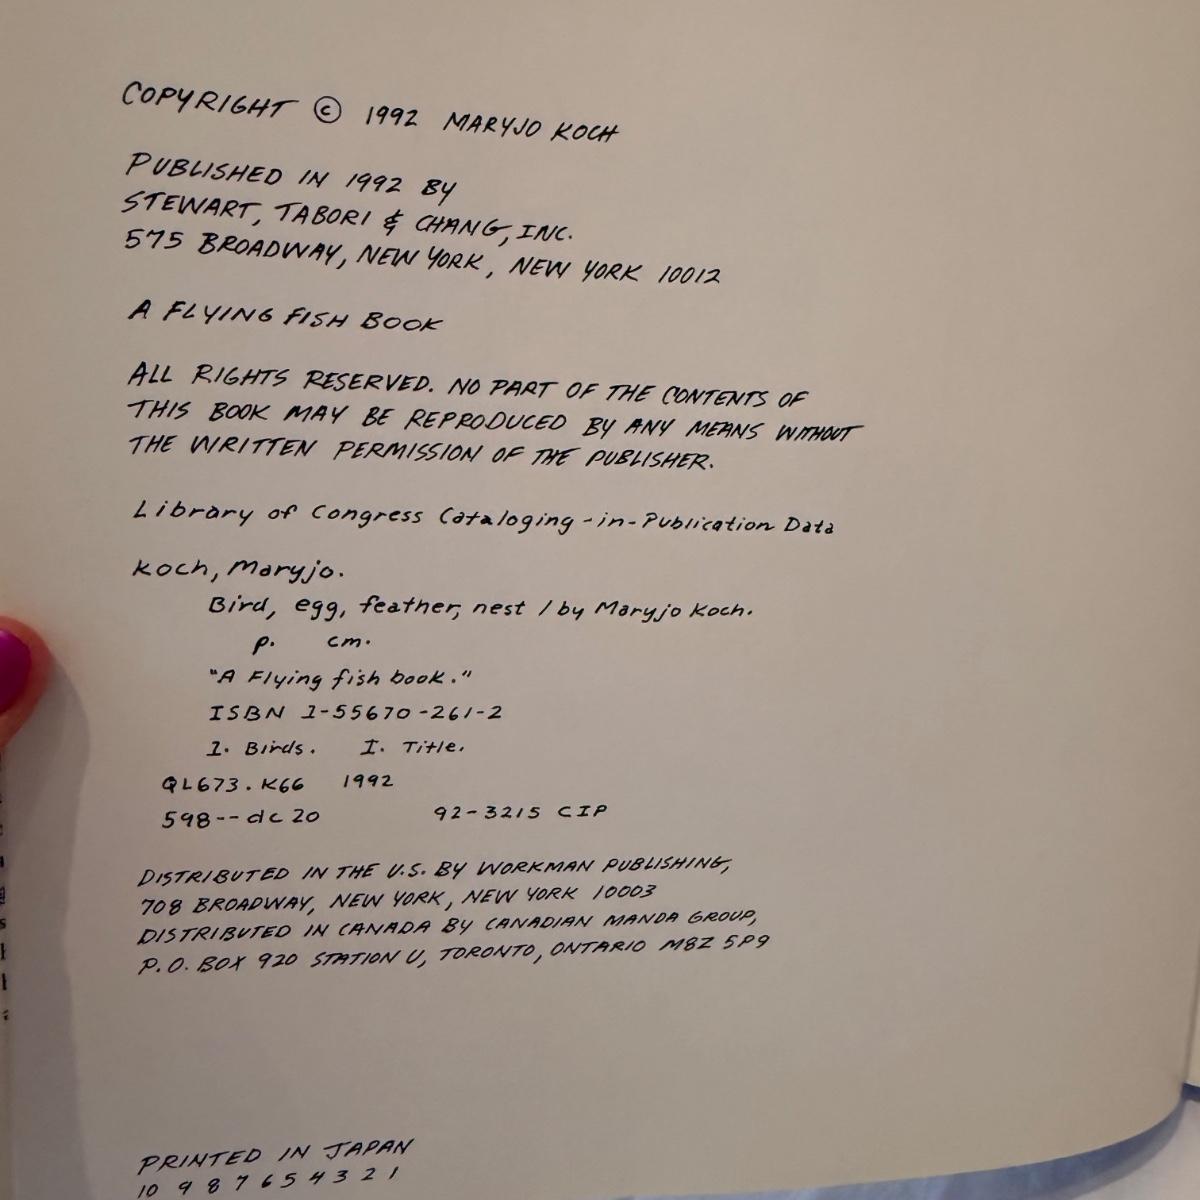 COPYRIGHT © 1992 MARYJO KOCH
PUBLISHED IN 1992 BY
STEWART, TABORI & CHANG, INC.
575 BROADWAY, NEW YORK, NEW YORK 10012
A FLYING FISH BOOK
ALL RIGHTS RESERVED. NO PART OF THE CONTENTS OF
THIS BOOK MAY BE REPRODUCED BY ANY MEANS WITHOUT
THE WRITTEN PERMISSION OF THE PUBLISHER.
Library of Congress Cataloging-in-Publication Data
Koch, Maryjo.
Bird, egg, feather, nest / by Maryjo Koch.
p. cm.
"A Flying fish book."
ISBN 1-55670-261-2
1. Birds. I. Title.
QL673.K66 1992
598--dc20 92-3215 CIP
DISTRIBUTED IN THE U.S. BY WORKMAN PUBLISHING,
708 BROADWAY, NEW YORK, NEW YORK 10003
DISTRIBUTED IN CANADA BY CANADIAN MANDA GROUP,
P.O. BOX 920 STATION U, TORONTO, ONTARIO M8Z 5P9
PRINTED IN JAPAN
10 9 8 7 6 5 4 3 2 1